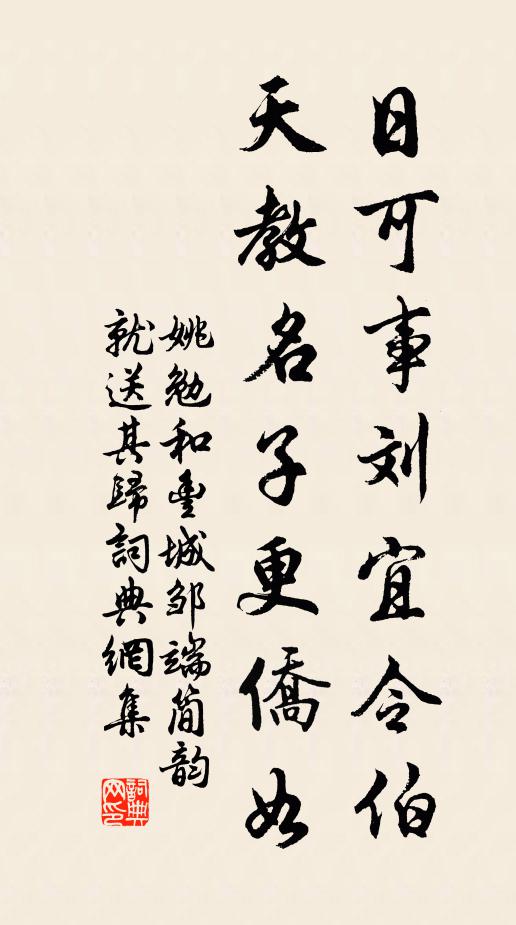 日可事刘宜令伯
天教名子更僑如
姚勉和豐城邹端简韵
就送其歸詞典網集
詞典网印